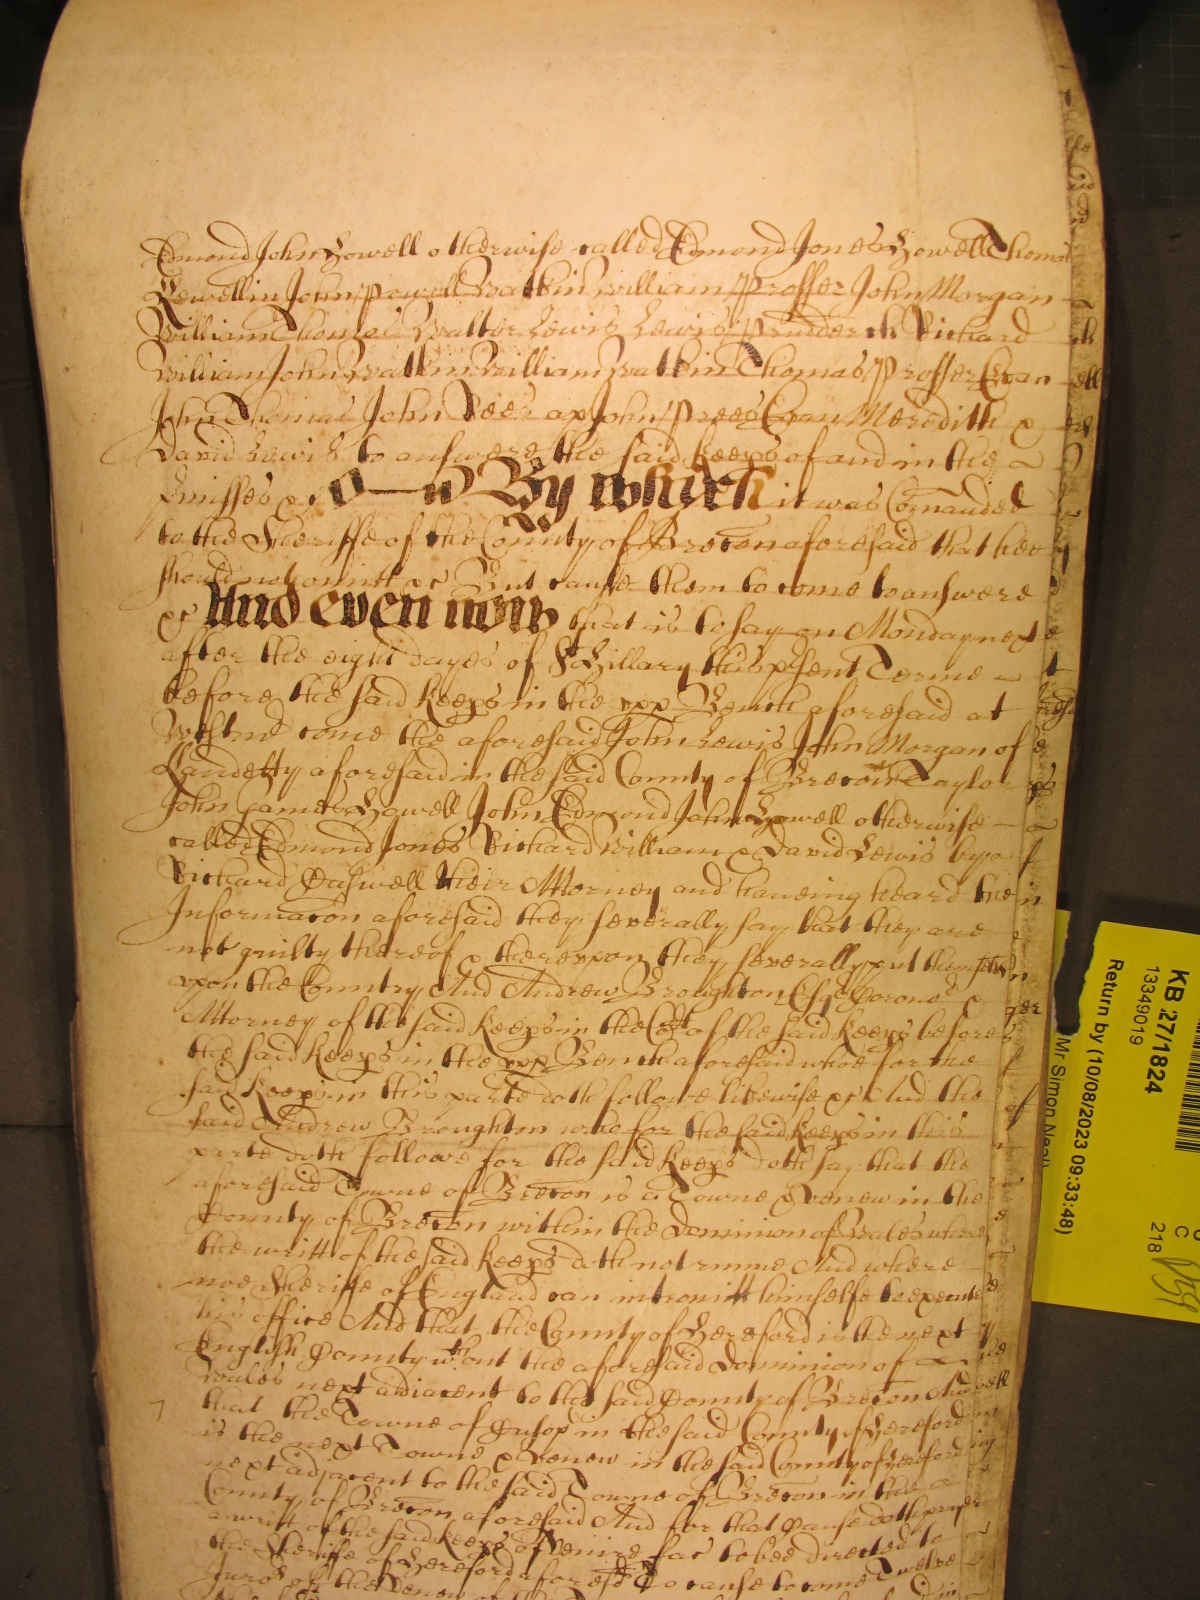 Edmond John Howell otherwise called Edmond Jones Howell Thomas
Lewellin John Powell Watkin William Prosser John Morgan
William Thomas Walter Lewis Lewis Prudderch Richard
William John Watkin William Watkin Thomas Prosser Evan
John Thomas John Rees ap John Prees Evan Meredith &
David Lewis to answere the said keeps of and in the
Pmisses &c By which it was Comanded
to the Sheriffe of the County of Brecon aforesaid that hee
should not omitt &c But cause them to come to answere
&c And even now that is to say on Monday next
after the eight dayes of St Hillary this psent Terme
before the said keeps in the upp Bench aforesaid at
Westmr come the aforesaid John Lewis John Morgan of
Landetty aforesaid in the said County of Brecon Taylor
John James Howell John Edmond John Howell otherwise
called Edmond Jones Richard William & David Lewis by
Richard Dashwell their Attorney and haveing heard the
Informacon aforesaid they severally say that they are
not guilty thereof & thereupon they severally put themselves
upon the Country And Andrew Broughton Esqr Coroner &
Attorney of the said keeps in the Cort of the said keeps before
the said keeps in the upp Bench aforesaid whoe for the
said keeps in this parte doth followe likewise &c And the
said Andrew Broughton who for the said keeps in this
parte doth followe for the said keeps doth say that the
aforesaid Towne of Brecon is a Towne & Venew in the
County of Brecon within the Dominion of Wales where
the writt of the said keeps doth not runne And where
noe Sheriffe of England can intromitt himselfe to execute
his office And that the County of Hereford is the next
English County wthout the aforesaid Dominion of
Wales next adiacent to the said County of Brecon And
that the Towne of Cusop in the said County of Hereford
is the next Towne & Venew in the said County of Hereford
next adjacent to the said Towne of Brecon in the
County of Brecon aforesaid And for that Cause doth prayer
a writt of the said keeps of Venire fac to bee directed to
the Sheriffe of Hereford aforesd To cause to come Twelve
Juros of the Venew of the
KB 27/1824
13349019
Return by (10/08/2023 09:33:48)
Mr Simon Neal
C
218